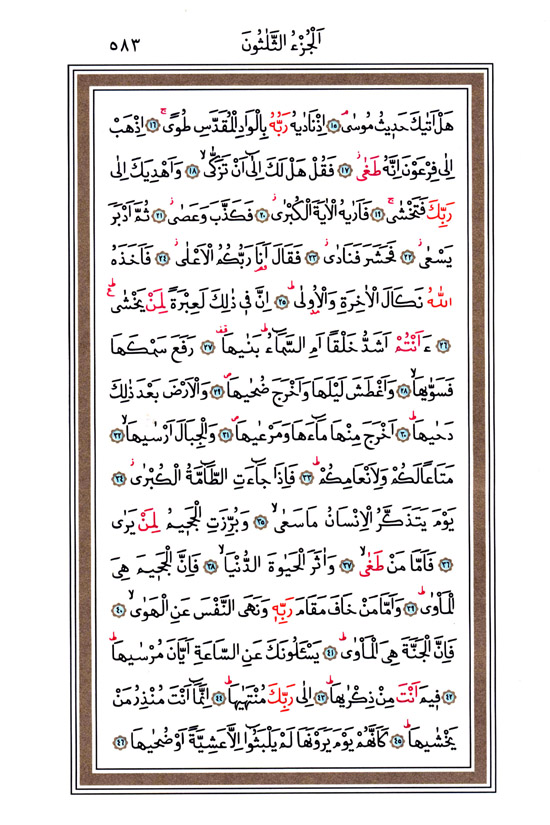 اَلْجُزْءُ الثَّلٰثُونَ ٥٨٣
هَلْ اَتٰيكَ حَد۪يثُ مُوسٰىۢ ﴿١٥﴾ اِذْ نَادٰيهُ رَبُّهُ بِالْوَادِ الْمُقَدَّسِ طُوًىۚ ﴿١٦﴾ اِذْهَبْ
اِلٰى فِرْعَوْنَ اِنَّهُ طَغٰىۘ ﴿١٧﴾ فَقُلْ هَلْ لَكَ اِلٰٓى اَنْ تَزَكّٰىۙ ﴿١٨﴾ وَاَهْدِيَكَ اِلٰى
رَبِّكَ فَتَخْشٰىۚ ﴿١٩﴾ فَاَرٰيهُ الْاٰيَةَ الْكُبْرٰىۘ ﴿٢٠﴾ فَكَذَّبَ وَعَصٰىۘ ﴿٢١﴾ ثُمَّ اَدْبَرَ
يَسْعٰىۘ ﴿٢٢﴾ فَحَشَرَ فَنَادٰىۘ ﴿٢٣﴾ فَقَالَ اَنَا۬ رَبُّكُمُ الْاَعْلٰىۘ ﴿٢٤﴾ فَاَخَذَهُ
اللّٰهُ نَكَالَ الْاٰخِرَةِ وَالْاُو۫لٰىۜ ﴿٢٥﴾ اِنَّ ف۪ي ذٰلِكَ لَعِبْرَةً لِمَنْ يَخْشٰىۜ
﴿٢٦﴾ ءَاَنْتُمْ اَشَدُّ خَلْقًا اَمِ السَّمَٓاءُۜ بَنٰيهَا۠ ﴿٢٧﴾ رَفَعَ سَمْكَهَا
فَسَوّٰيهَاۙ ﴿٢٨﴾ وَاَغْطَشَ لَيْلَهَا وَاَخْرَجَ ضُحٰيهَاۖ ﴿٢٩﴾ وَالْاَرْضَ بَعْدَ ذٰلِكَ
دَحٰيهَاۜ ﴿٣٠﴾ اَخْرَجَ مِنْهَا مَٓاءَهَا وَمَرْعٰيهَاۖ ﴿٣١﴾ وَالْجِبَالَ اَرْسٰيهَاۙ ﴿٣٢﴾
مَتَاعًا لَكُمْ وَلِاَنْعَامِكُمْۜ ﴿٣٣﴾ فَاِذَا جَٓاءَتِ الطَّٓامَّةُ الْكُبْرٰىۘ ﴿٣٤﴾
يَوْمَ يَتَذَكَّرُ الْاِنْسَانُ مَا سَعٰىۙ ﴿٣٥﴾ وَبُرِّزَتِ الْجَح۪يمُ لِمَنْ يَرٰى
﴿٣٦﴾ فَاَمَّا مَنْ طَغٰىۙ ﴿٣٧﴾ وَاٰثَرَ الْحَيٰوةَ الدُّنْيَاۙ ﴿٣٨﴾ فَاِنَّ الْجَح۪يمَ هِيَ
الْمَأْوٰىۜ ﴿٣٩﴾ وَاَمَّا مَنْ خَافَ مَقَامَ رَبِّه۪ وَنَهَى النَّفْسَ عَنِ الْهَوٰىۙ ﴿٤٠﴾
فَاِنَّ الْجَنَّةَ هِيَ الْمَأْوٰىۜ ﴿٤١﴾ يَسْـَٔلُونَكَ عَنِ السَّاعَةِ اَيَّانَ مُرْسٰيهَاۜ
﴿٤٢﴾ ف۪يمَ اَنْتَ مِنْ ذِكْرٰيهَاۜ ﴿٤٣﴾ اِلٰى رَبِّكَ مُنْتَهٰيهَاۜ ﴿٤٤﴾ اِنَّمَٓا اَنْتَ مُنْذِرُ مَنْ
يَخْشٰيهَاۜ ﴿٤٥﴾ كَاَنَّهُمْ يَوْمَ يَرَوْنَهَا لَمْ يَلْبَثُٓوا اِلَّا عَشِيَّةً اَوْ ضُحٰيهَا ﴿٤٦﴾